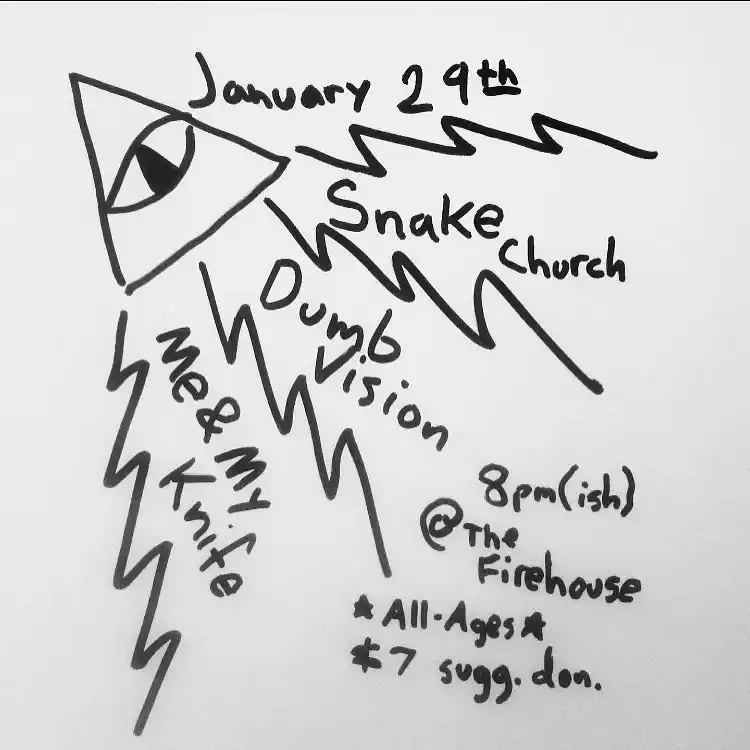 January 29th
Snake
Church
Dumb
Vision
Me & My
Knife
8pm(ish)
@ The
Firehouse
*All-Ages*
$7 sugg. don.